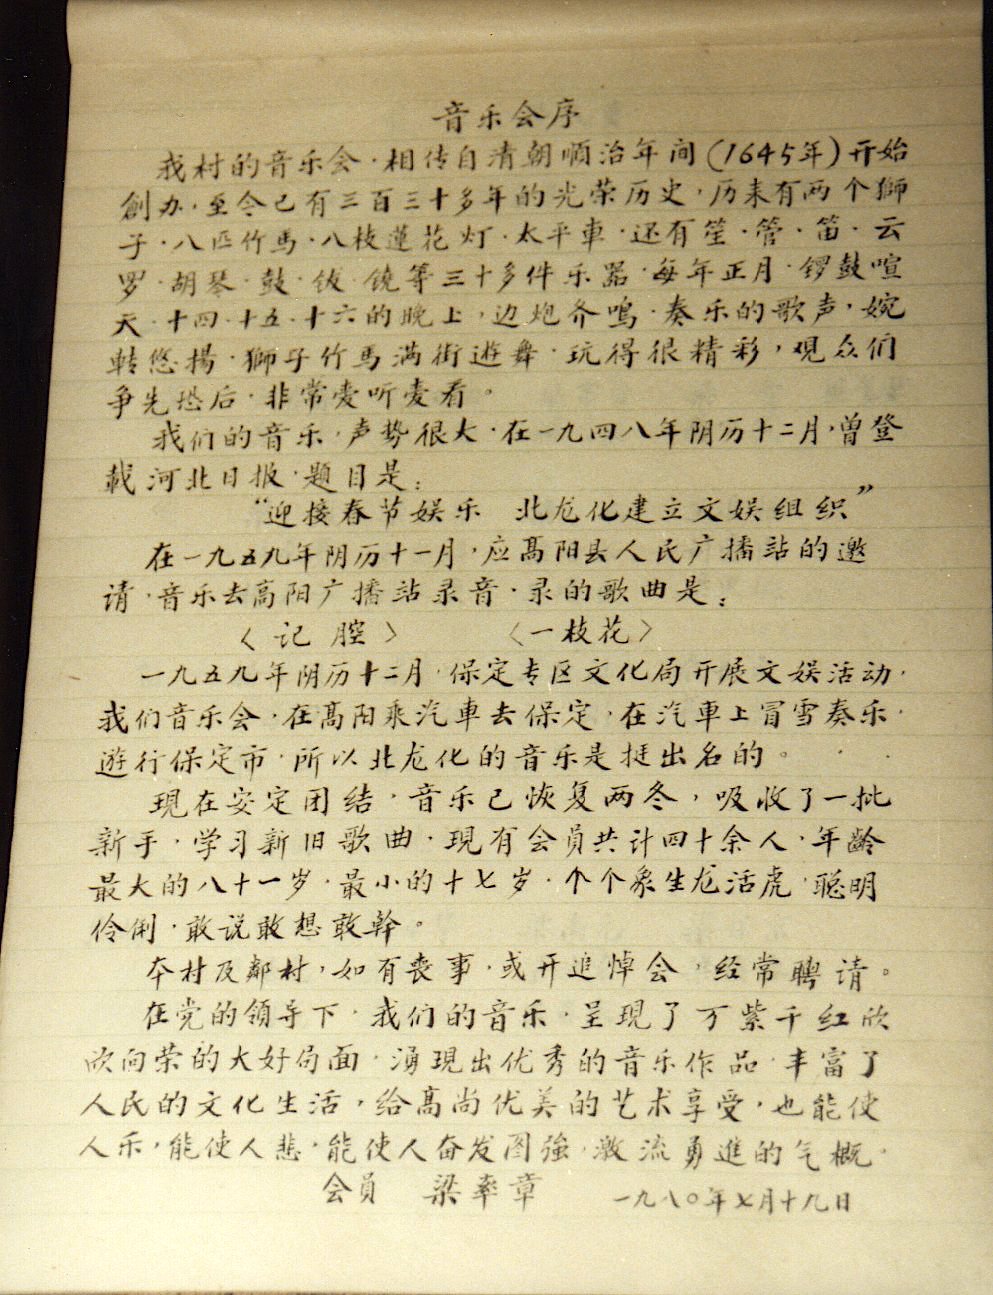 音乐会序
我村的音乐会·相传自清朝顺治年间(1645年)开始
創办·至今已有三百三十多年的光荣历史,历来有两个獅
子·八匹竹馬·八枝蓮花灯·太平車·还有笙·管·笛·云
罗·胡琴·鼓·钹·镜等三十多件乐器·每年正月·锣鼓喧
天·十四·十五·十六的晚上,边炮齐鸣·奏乐的歌声,婉
転悠揚·獅子竹馬满街遊舞·玩得很精彩,观众们
争先恐后·非常爱听爱看。
我们的音乐,声势很大·在一九四八年阴历十二月,曾登
載河北日报·题目是:
“迎接春节娱乐 北龙化建立文娱组织”
在一九五九年阴历十一月,应髙阳县人民广播站的邀
请·音乐去高阳广播站录音·录的歌曲是:
〈记腔〉 〈一枝花〉
一九五九年阴历十二月·保定专区文化局开展文娱活动·
我们音乐会·在髙阳乘汽車去保定·在汽車上冒雪奏乐·
遊行保定市·所以北龙化的音乐是挺出名的。
現在安定团结,音乐已恢复两冬,吸收了一批
新手,学习新旧歌曲·現有会员共计四十余人·年齡
最大的八十一岁·最小的十七岁·个个象生龙活虎·聪明
伶俐·敢说敢想敢幹。
本村及鄰村,如有喪事·或开追悼会,经常聘请。
在党的領导下·我们的音乐·呈現了万紫千红欣
欣向荣的大好局面·湧現出优秀的音乐作品·丰富了
人民的文化生活,给髙尚优美的艺术享受,也能使
人乐,能使人悲·能使人奋发图強·激流勇進的气概·
会员 梁率章 一九八〇年七月十九日